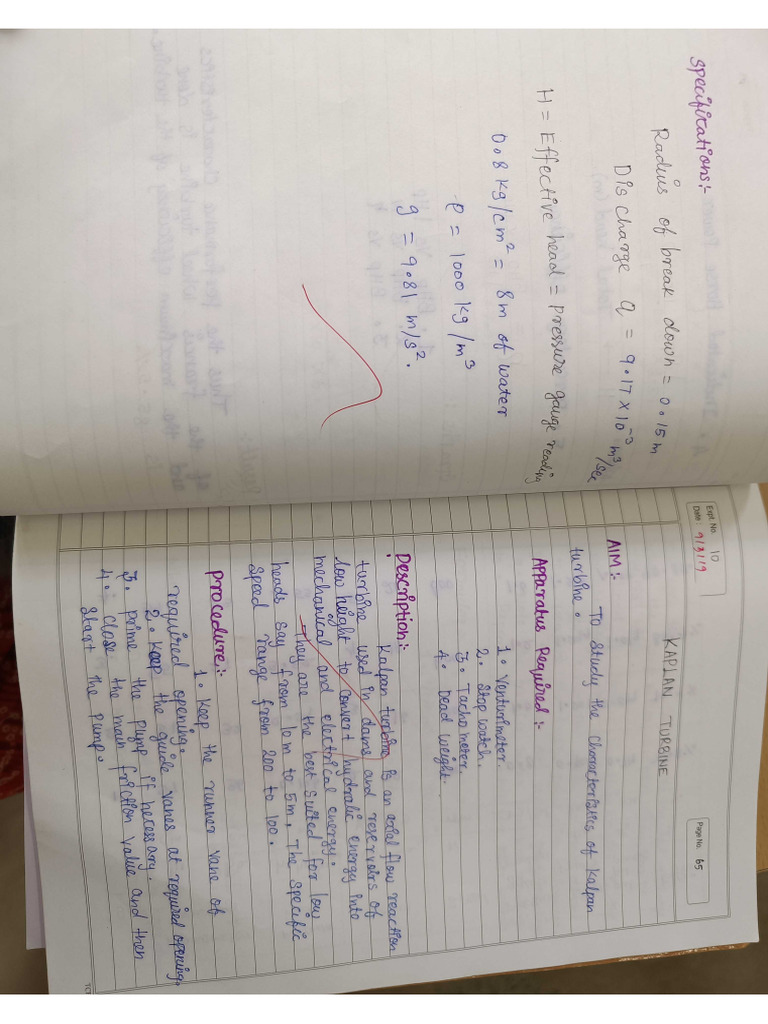 Specifications:-
Radius of break down = 0.15m
Discharge q = 9.17 x 10⁻³ m³/sec
H = Effective head = pressure gauge reading
0.8 kg/cm² = 8m of water
ρ = 1000 kg/m³
g = 9.81 m/s².
Expt. No. 10
Date : 9/3/19
Page No. 65
KAPLAN TURBINE
AIM:-
To study the characteristics of kalpan
turbine.
Apparatus Required:-
1. Venturimeter.
2. Stop watch.
3. Tachometer.
4. Dead weight.
Description:-
Kalpan turbine is an axial flow reaction
turbine used in dams and reservoirs of
low height to convert hydralic energy into
mechanical and electrical energy.
They are the best suited for low
heads say from 10m to 5m. The specific
speed range from 200 to 100.
procedure:-
1. Keep the runner vane of
required opening.
2. Keep the guide vanes at required opening.
3. prime the pump if necessary.
4. Close the main friction value and then
start the pump.